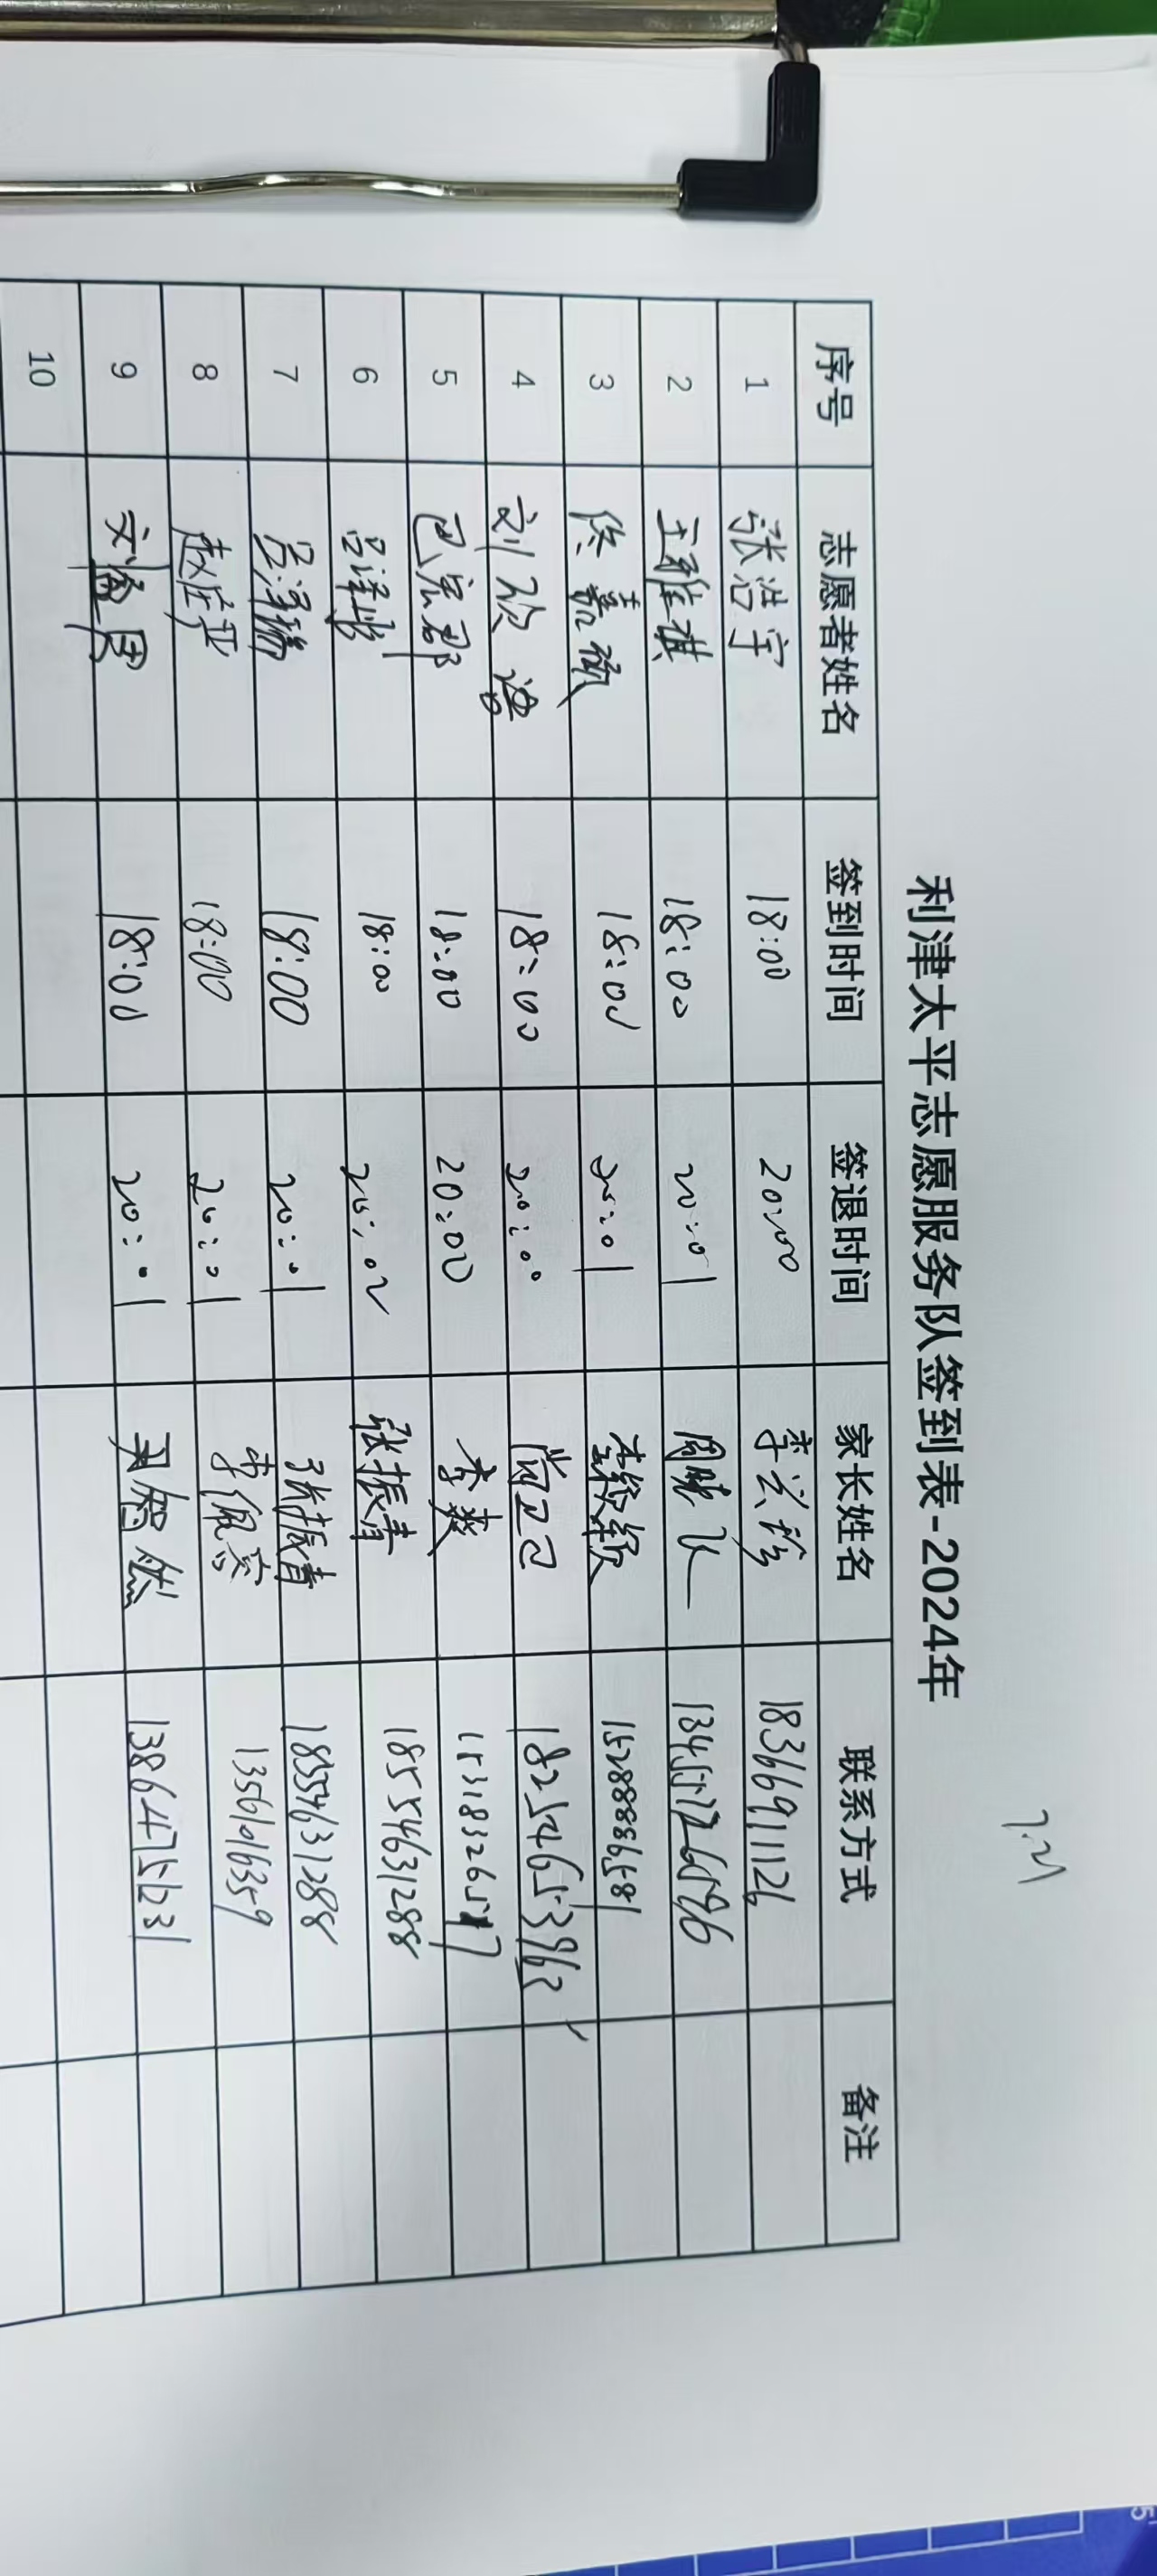 7.21
利津太平志愿服务队签到表-2024年
序号 志愿者姓名 签到时间 签退时间 家长姓名 联系方式 备注
1 张浩宇 18:00 20:00 李兰珍 18366911126
2 王雅琪 18:00 20:01 周晓飞 13455726596
3 佟嘉 18:00 20:01 颖 15288889581
4 刘欣 18:00 20:00 尚卫卫 18254653963
5 巴宏郡 18:00 20:00 李爽 15318326517
6 吕泽 18:00 20:02 张振青 18554631288
7 吕泽瑜 18:00 20:01 张振青 18554631288
8 赵 18:00 20:01 李佩 13561016359
9 文 18:00 20:01 然 13864751231
10